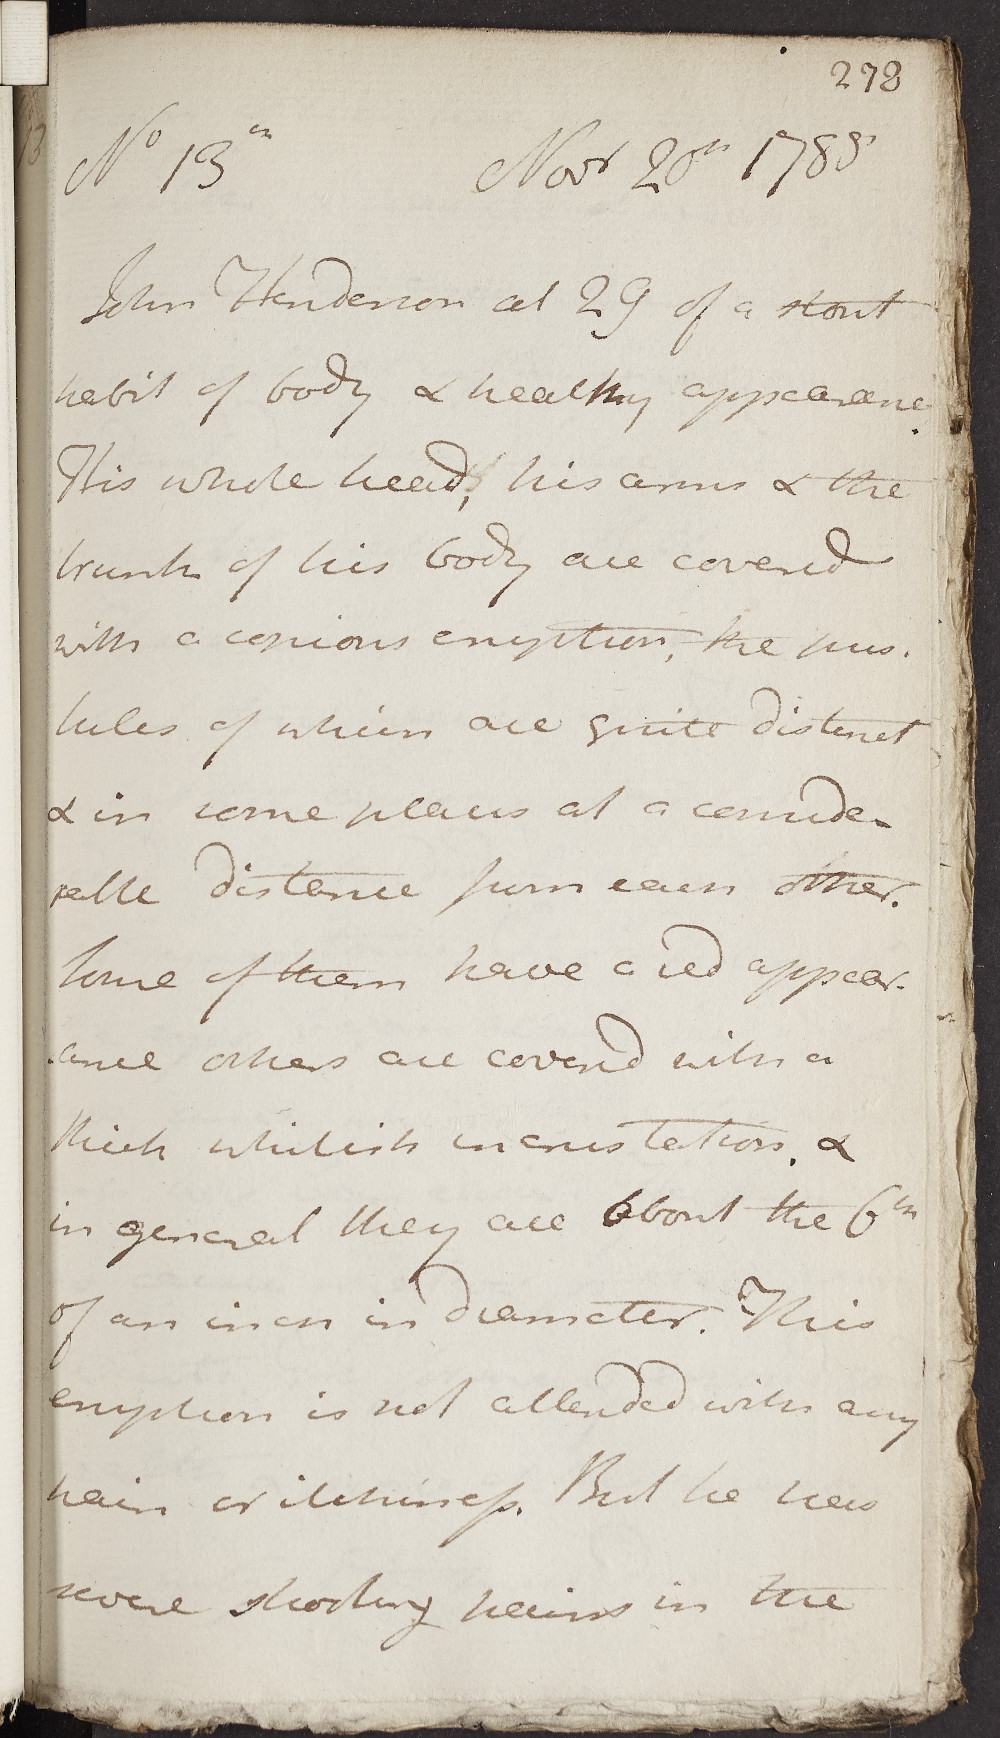 278
No 13th Novr 20th 1788
John Henderson aet 29 of a stout
habit of body & healthy appearance.
His whole head, his arms & the
trunk of his body are covered
with a copious eruption, the pus-
tules of which are quite distinct
& in some places at a conside-
rable distance from each other.
Some of them have a red appear-
-ance others are covered with a
thick whitish incrustation. &
in general they are about the 6th
of an inch in diameter. This
eruption is not attended with any
pain or itchiness. But he has
severe shooting pains in the